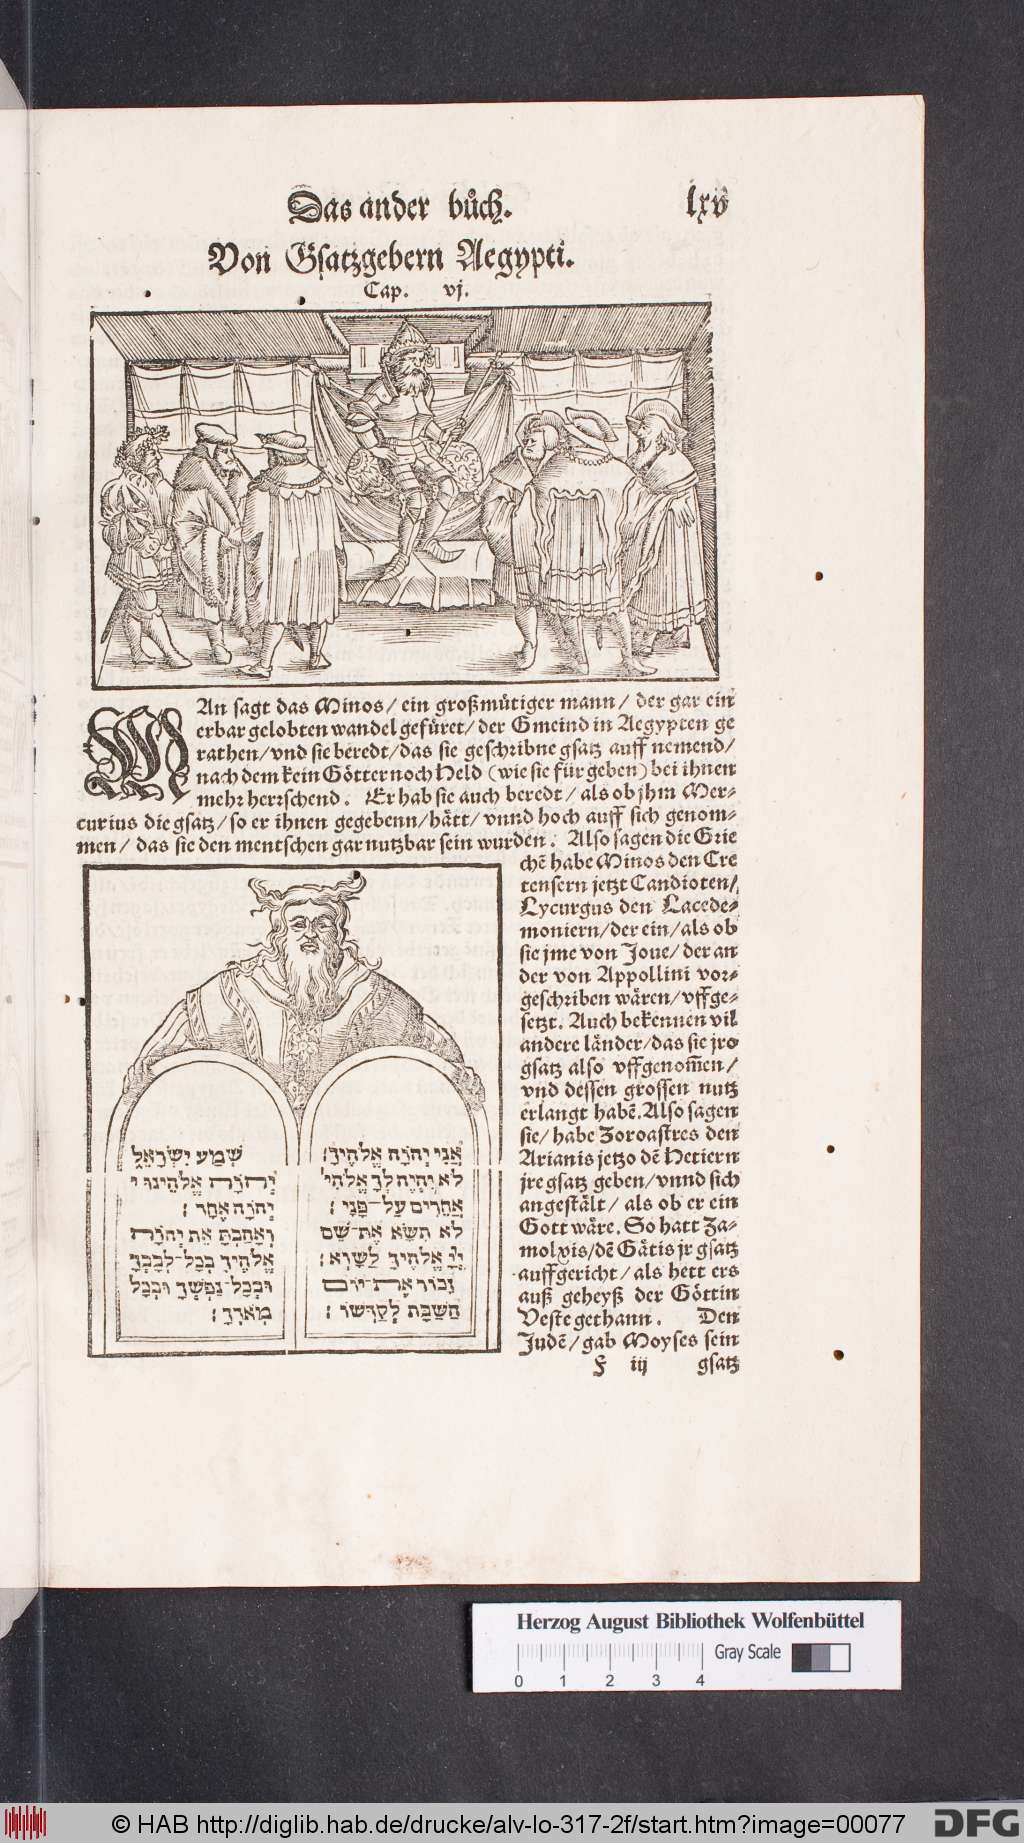 Das ander bůch. lxv
Von Gsatzgebern Aegypti.
Cap. vj.
MAn sagt das Minos / ein großmütiger mann / der gar ein
erbar gelobten wandel gefüret / der Gmeind in Aegypten ge
rathen / vnd sie beredt / das sie geschribne gsatz auff nemend /
nach dem kein Götter noch Held (wie sie für geben) bei ihnen
mehr herrschend. Er hab sie auch beredt / als ob jhm Mer-
curius die gsatz / so er ihnen gegebenn / hätt / vnnd hoch auff sich genom-
men / das sie den mentschen gar nutzbar sein wurden. Also sagen die Grie
chē habe Minos den Cre
tensern jetzt Candioten /
Lycurgus den Lacede-
moniern / der ein / als ob
sie jme von Joue / der an
der von Appollini vor-
geschriben wären / vffge-
setzt. Auch bekennen vil
andere länder / das sie jre
gsatz also vffgenom̄en /
vnd dessen grossen nutz
erlangt habē. Also sagen
sie / habe Zoroastres den
Arianis jetzo dē Hetiern
jre gsatz geben / vnnd sich
angestält / als ob er ein
Gott wäre. So hatt Za-
molxis / dē Gätis jr gsatz
auffgericht / als hett ers
auß geheyß der Göttin
Veste gethann. Den
Judē / gab Moyses sein
F iij gsatz
אֲנֹכִי יְהֹוָה אֱלֹהֶיךָ׃
לֹא יִהְיֶה לְךָ אֱלֹהִי'
אֲחֵרִים עַל־פָּנָי׃
לֹא תִשָּׂא אֶת־שֵׁם
יְיָ אֱלֹהֶיךָ לַשָּׁוְא׃
זָכוֹר אֶת־יוֹם
הַשַּׁבָּת לְקַדְּשׁוֹ׃
שְׁמַע יִשְׂרָאֵל
יְהֹוָה אֱלֹהֵינוּ י
יְהֹוָה אֶחָד׃
וְאָהַבְתָּ אֵת יְהֹוָה
אֱלֹהֶיךָ בְּכָל־לְבָבְךָ
וּבְכָל־נַפְשְׁךָ וּבְכָל
מְאֹדֶךָ׃
Herzog August Bibliothek Wolfenbüttel
Gray Scale
0 1 2 3 4
© HAB http://diglib.hab.de/drucke/alv-lo-317-2f/start.htm?image=00077
DFG